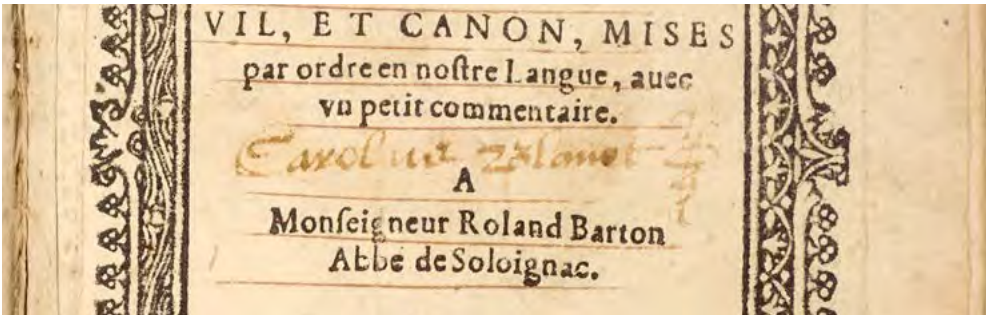 VIL, ET CANON, MISES
par ordre en noſtre Langue, auec
vn petit commentaire.
Carolus
A
Monſeigneur Roland Barton
Abbé de Soloignac.